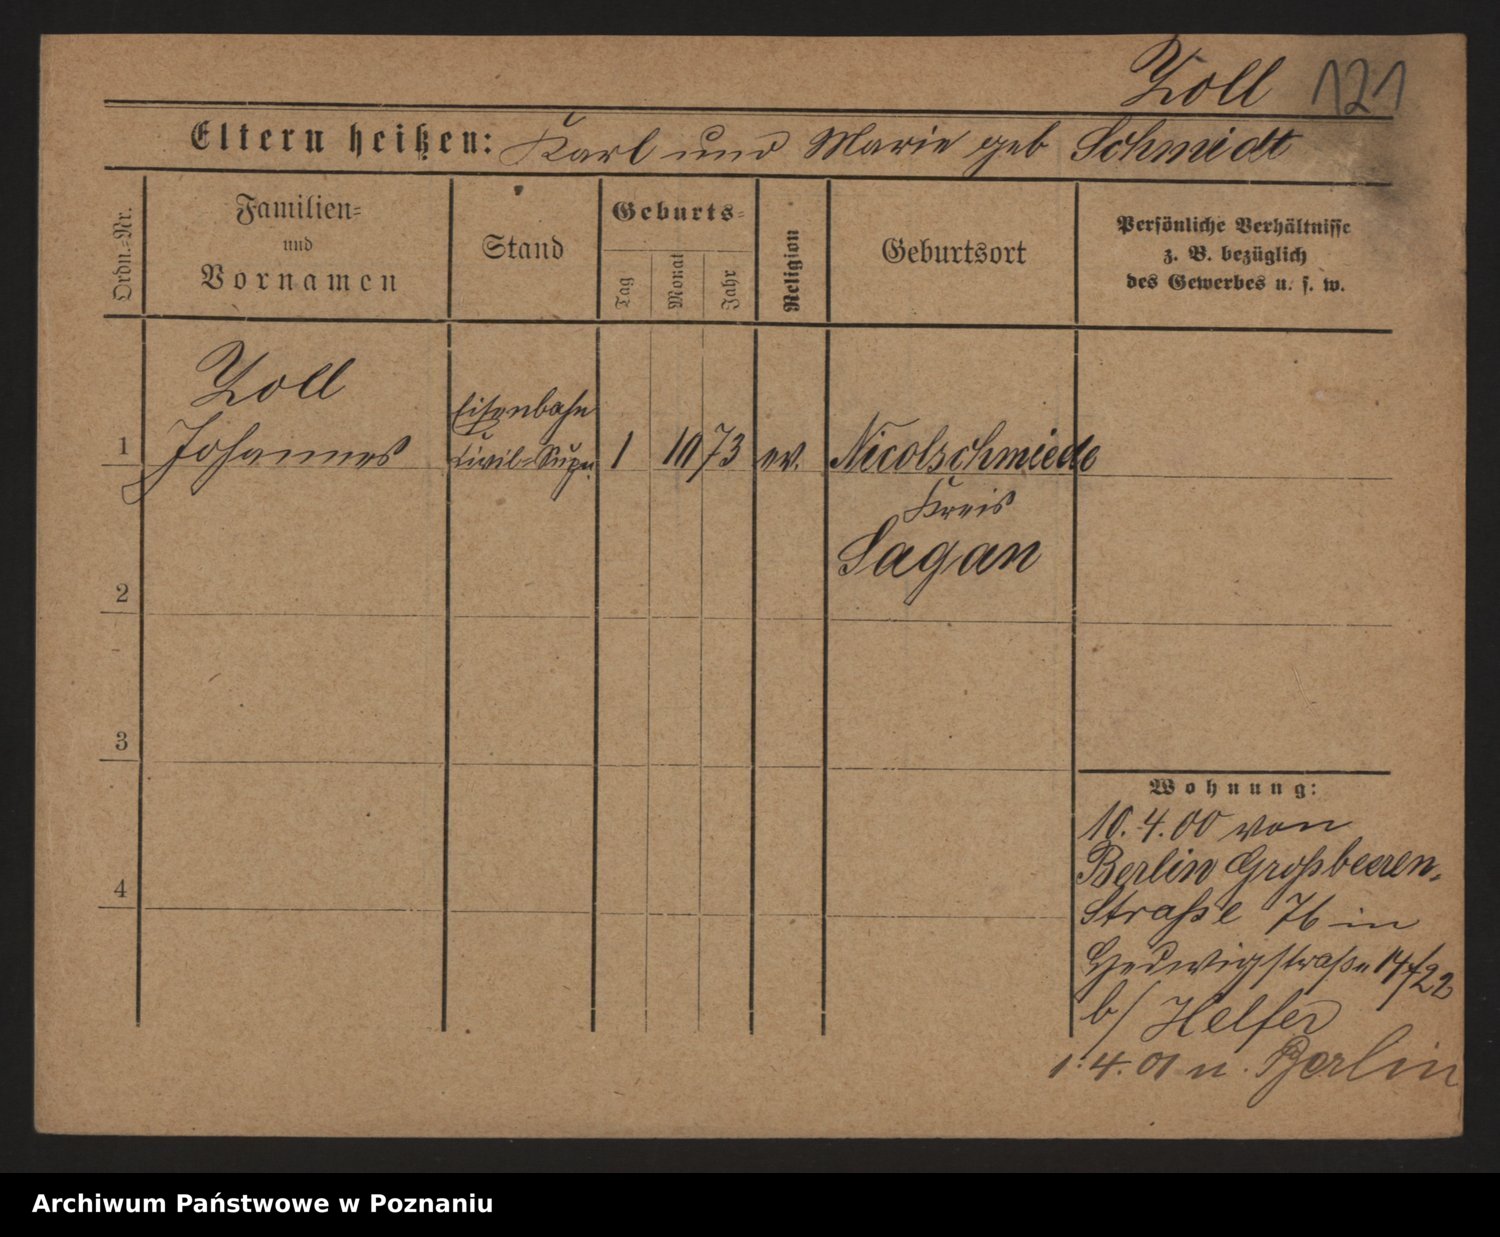 Zoll 121
Eltern heißen: Karl und Marie geb Schmidt
Ordn.=Nr.
Familien=
und
Vornamen
Stand
Geburts=
Tag
Monat
Jahr
Religion
Geburtsort
Persönliche Verhältnisse
z. B. bezüglich
des Gewerbes u. s. w.
Zoll
Eisenbahn
1 Johannes Civil=Supn. 1 10 73 ev. Nicolschmiede
Kreis
Sagan
2
3
4
Wohnung:
10.4.00 von
Berlin Großbeeren-
Straße 76 in
Hedwigstraße 14/22
b/ Helfer
1.4.01 n. Berlin
Archiwum Państwowe w Poznaniu